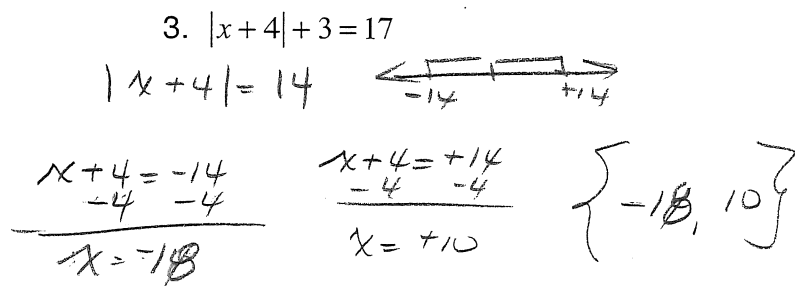 3. |x + 4| + 3 = 17
|x + 4| = 14
-14 +14
x + 4 = -14
-4 -4
x = -18
x + 4 = +14
-4 -4
x = +10
{-18, 10}